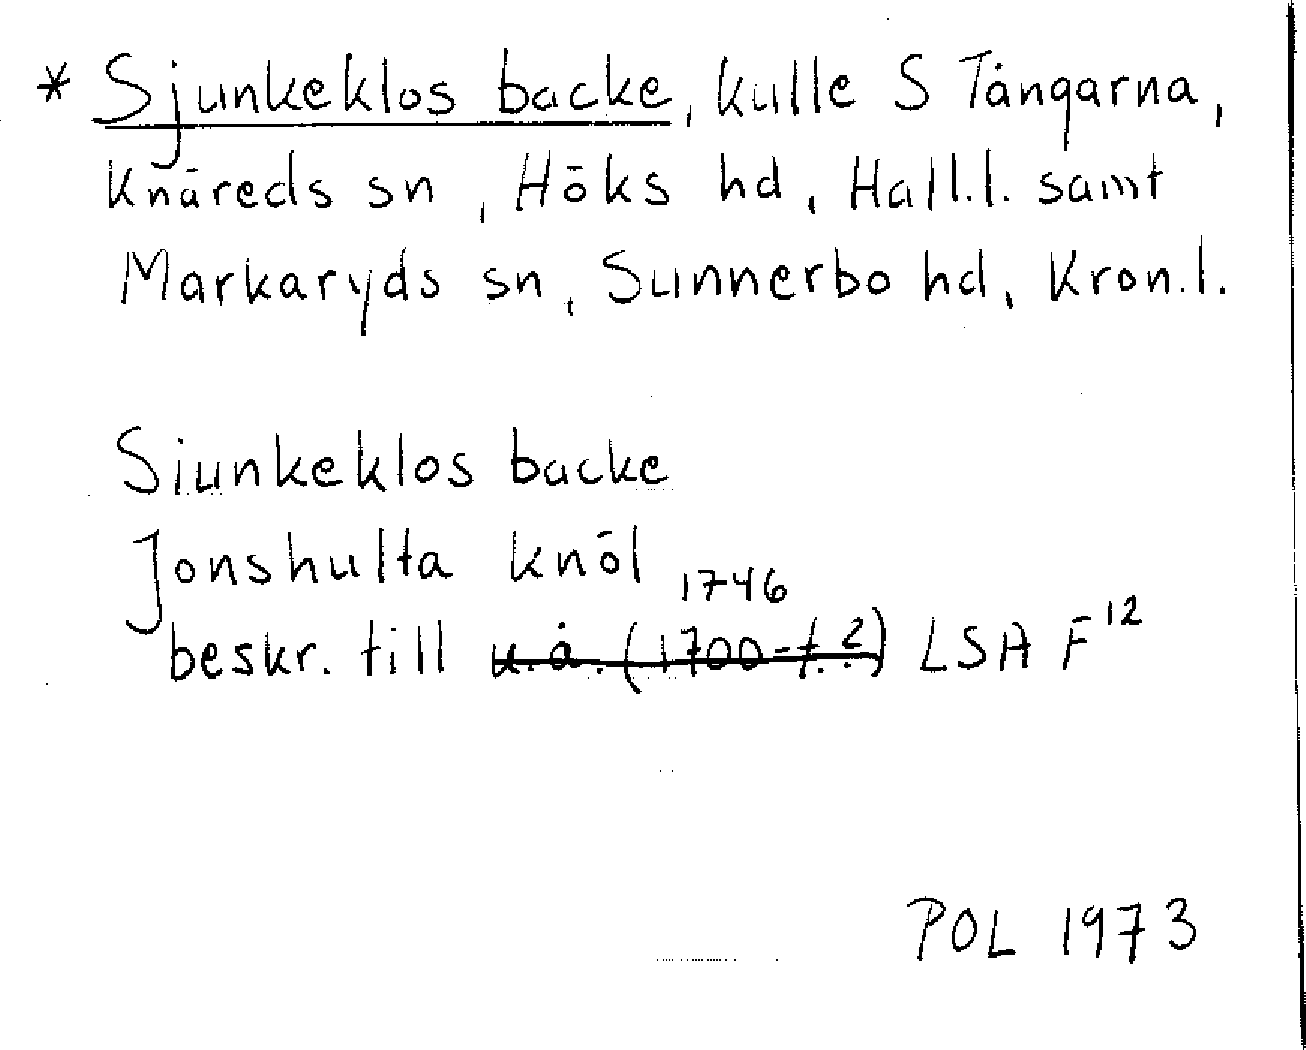 * Sjunkeklos backe, kulle S Tångarna,
Knäreds sn, Höks hd, Hall.l. samt
Markaryds sn, Sunnerbo hd, Kron.l.
Siunkeklos backe
Jonshulta knöl
1746
beskr. till u.å. (1700-t.?) LSA F12
POL 1973